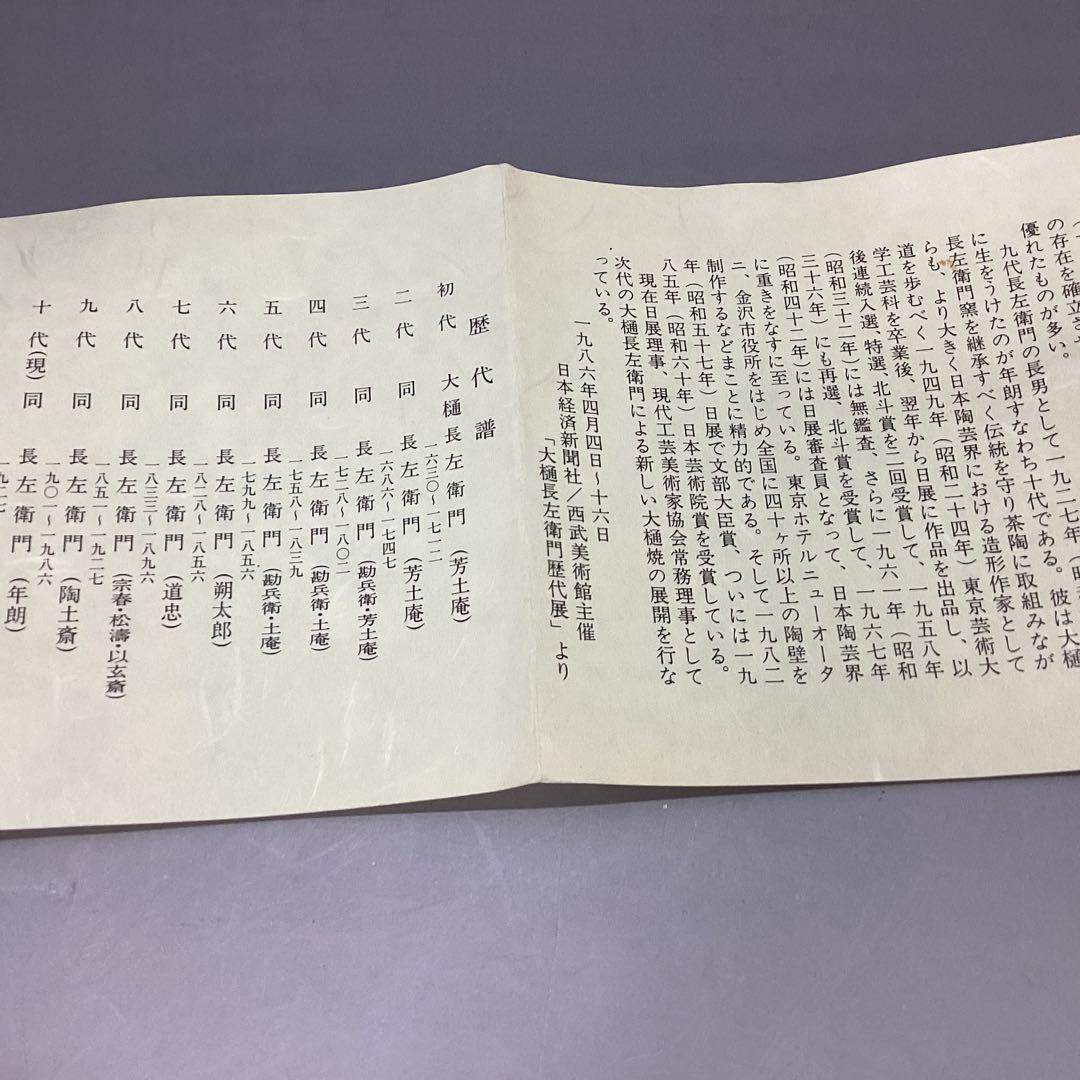 の存在を確立さ
優れたものが多い。
九代長左衛門の長男として一九二七年（昭
に生をうけたのが年朗すなわち十代である。彼は大樋
長左衛門窯を継承すべく伝統を守り茶陶に取組みなが
らも、より大きく日本陶芸界における造形作家として
道を歩むべく一九四九年（昭和二十四年）東京芸術大
学工芸科を卒業後、翌年から日展に作品を出品し、以
後連続入選、特選、北斗賞を二回受賞して、一九五八年
（昭和三十三年）には無鑑査、さらに一九六一年（昭和
三十六年）にも再選、北斗賞を受賞して、一九六七年
（昭和四十二年）には日展審査員となって、日本陶芸界
に重きをなすに至っている。東京ホテルニューオータ
ニ、金沢市役所をはじめ全国に四十ヶ所以上の陶壁を
制作するなどまことに精力的である。そして一九八二
年（昭和五十七年）日展で文部大臣賞、ついには一九
八五年（昭和六十年）日本芸術院賞を受賞している。
現在日展理事、現代工芸美術家協会常務理事として
次代の大樋長左衛門による新しい大樋焼の展開を行な
っている。
一九八六年四月四日～十六日
日本経済新聞社／西武美術館主催
「大樋長左衛門歴代展」より
歴代譜
初代 大樋長左衛門（芳土庵）
一六三〇～一七一二
二代 同 長左衛門（芳土庵）
一六八六～一七四七
三代 同 長左衛門（勘兵衛・芳土庵）
一七二八～一八〇二
四代 同 長左衛門（勘兵衛・土庵）
一七五八～一八三九
五代 同 長左衛門（勘兵衛・土庵）
一七九九～一八五六
六代 同 長左衛門（朔太郎）
一八二八～一八五六
七代 同 長左衛門（道忠）
一八三三～一八九六
八代 同 長左衛門（宗春・松濤・以玄斎）
一八五一～一九二七
九代 同 長左衛門（陶土斎）
一九〇一～一九八六
十代（現） 同 長左衛門（年朗）
一九二七